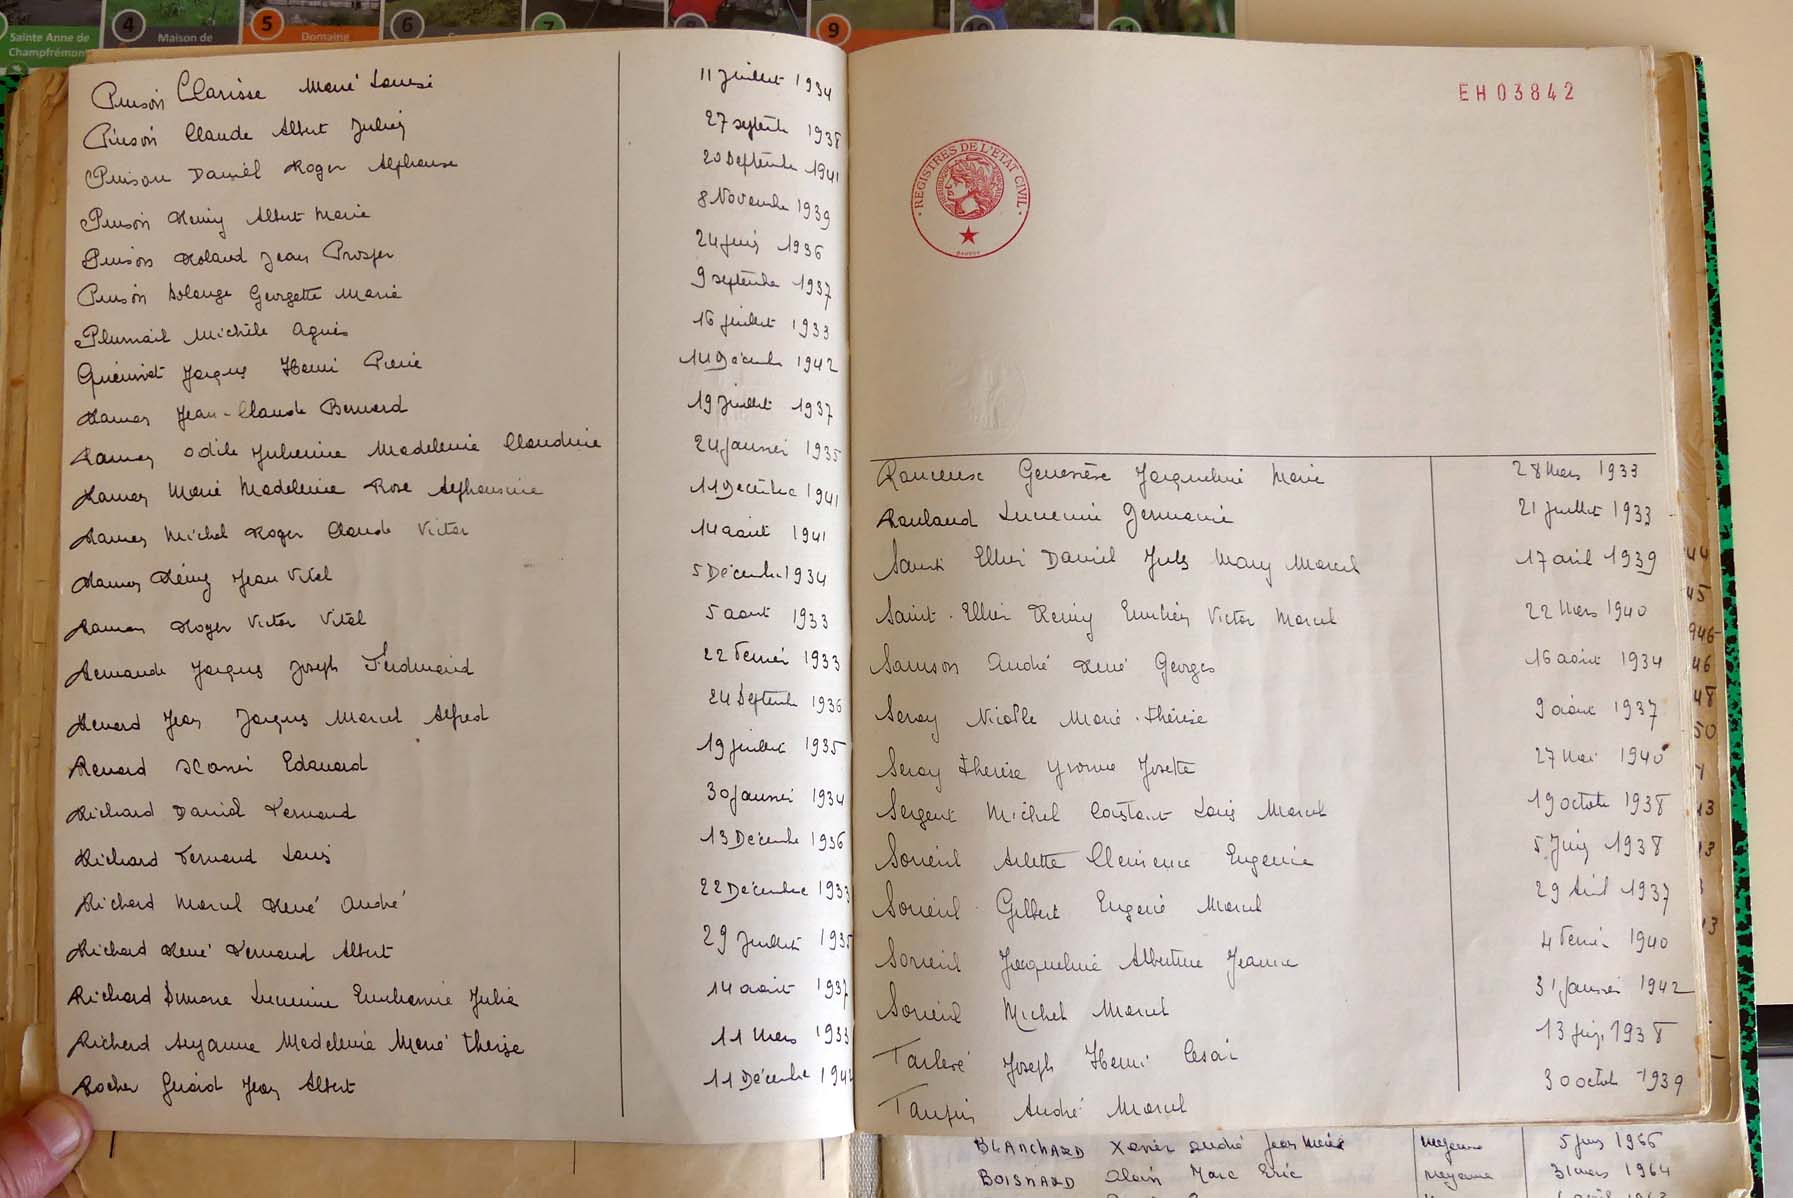 4
5
6
7
8
9
10
11
Sainte Anne de
Champfrémont
Maison de
Domaine
Pinson Clarisse Marie Louise 11 Juillet 1934
Pinson Claude Albert Julien 27 septembre 1938
Pinson Daniel Roger Alphonse 20 Septembre 1941
Pinson Rémy Albert Marie 8 Novembre 1939
Pinson Roland Jean Prosper 24 juin 1936
Pinson Solange Georgette Marie 9 septembre 1937
Plumail Michèle Agnès 16 juillet 1933
Jacques Henri Pierre 14 Décembre 1942
Ramon Jean-Claude Bernard 19 Juillet 1937
Ramon Odile Julienne Madeleine Claudine 24 janvier 1935
Ramon Marie Madeleine Rose Alphonsine 11 Décembre 1941
Ramon Michel Roger Claude Victor 14 août 1941
Ramon Rémy Jean Vital 5 Décembre 1934
Ramon Roger Victor Vital 5 août 1933
Jacques Joseph Ferdinand 22 Février 1933
Renard Jean Jacques Marcel Alfred 24 Septembre 1936
Renard Edouard 19 juillet 1935
Richard Daniel Fernand 30 janvier 1934
Richard Fernand Louis 13 Décembre 1936
Richard Marcel René André 22 Décembre 1933
Richard René Fernand Albert 29 Juillet 1935
Richard Simone Lucienne Julia 14 août 1937
Richard Suzanne Madeleine Marie Thérèse 11 Mars 1933
Rocher Gérard Jean Albert 11 Décembre
EH03842
REGISTRES DE L'ETAT CIVIL
Geneviève Jacqueline Marie 28 Mars 1933
Roulaud Lucienne Germaine 21 juillet 1933
Saint Ellier Daniel Jules Mary Marcel 17 avril 1939
Saint-Ellier Rémy Emilien Victor Marcel 22 Mars 1940
Samson André René Georges 16 août 1934
Seray Nicolle Marie-Thérèse 9 août 1937
Seray Thérèse Yvonne Josette 27 Mai 1940
Sergent Michel Constant Louis Marcel 19 octobre 1938
Sorieul Arlette Clémence Eugénie 5 Juin 1938
Sorieul Gilbert Eugène Marcel 29 Avril 1937
Sorieul Jacqueline Albertine Jeanne 4 Février 1940
Sorieul Michel Marcel 31 janvier 1942
Joseph Henri César 13 juin 1938
Taupin André Marcel 30 octobre 1939
BLANCHARD Xavier André Jean Marie Mayenne 5 juin 1966
BOISNARD Alain Marc Eric Mayenne 31 mars 1964
44
45
946
46
48
50